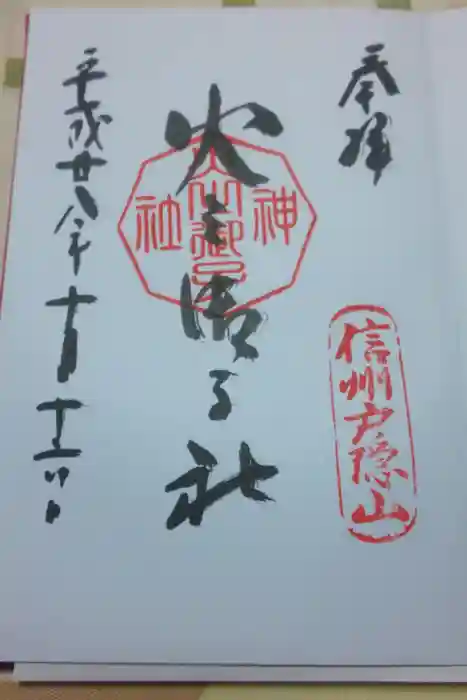 奉拝
信州戸隠山
火之御子社
神
社
平成廿八年十月